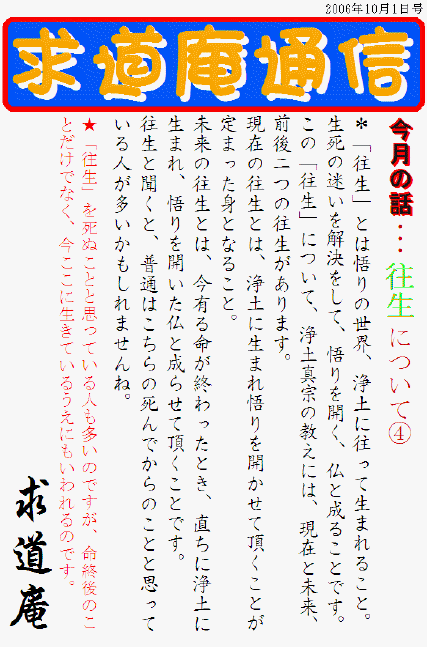 2006年10月1日号
求道庵通信
今月の話・・・往生について④
＊「往生」とは悟りの世界、浄土に往って生まれること。
生死の迷いを解決をして、悟りを開く、仏と成ることです。
この「往生」について、浄土真宗の教えには、現在と未来、
前後二つの往生があります。
現在の往生とは、浄土に生まれ悟りを開かせて頂くことが
定まった身となること。
未来の往生とは、今有る命が終わったとき、直ちに浄土に
生まれ、悟りを開いた仏と成らせて頂くことです。
往生と聞くと、普通はこちらの死んでからのことと思って
いる人が多いかもしれませんね。
★「往生」を死ぬことと思っている人も多いのですが、命終後のこ
とだけでなく、今ここに生きているうえにもいわれるのです。
求道庵